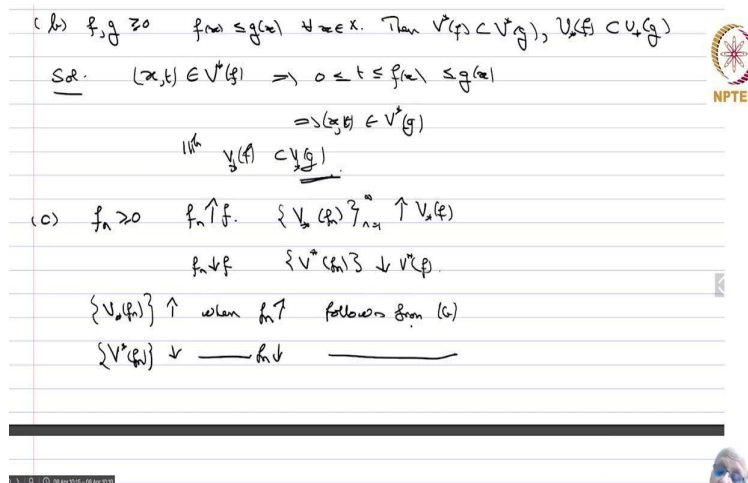 (b) f,g ≥0 f(x) ≤ g(x) ∀ x ∈ X. Then V*(f) ⊂ V*(g), V_*(f) ⊂ V_*(g)
Sol. (x,t) ∈ V*(f) ⇒ 0 ≤ t ≤ f(x) ≤ g(x)
⇒ (x,t) ∈ V*(g)
|||ly V_*(f) ⊂ V_*(g).
(c) f_n ≥0 f_n ↑ f. {V_*(f_n)}_{n=1}^∞ ↑ V_*(f)
f_n ↓ f {V*(f_n)} ↓ V*(f).
{V_*(f_n)} ↑ when f_n ↑ follows from (b)
{V*(f_n)} ↓ —— f_n ↓ ————
NPTE